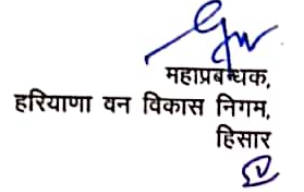 महाप्रबन्धक,
हरियाणा वन विकास निगम,
हिसार